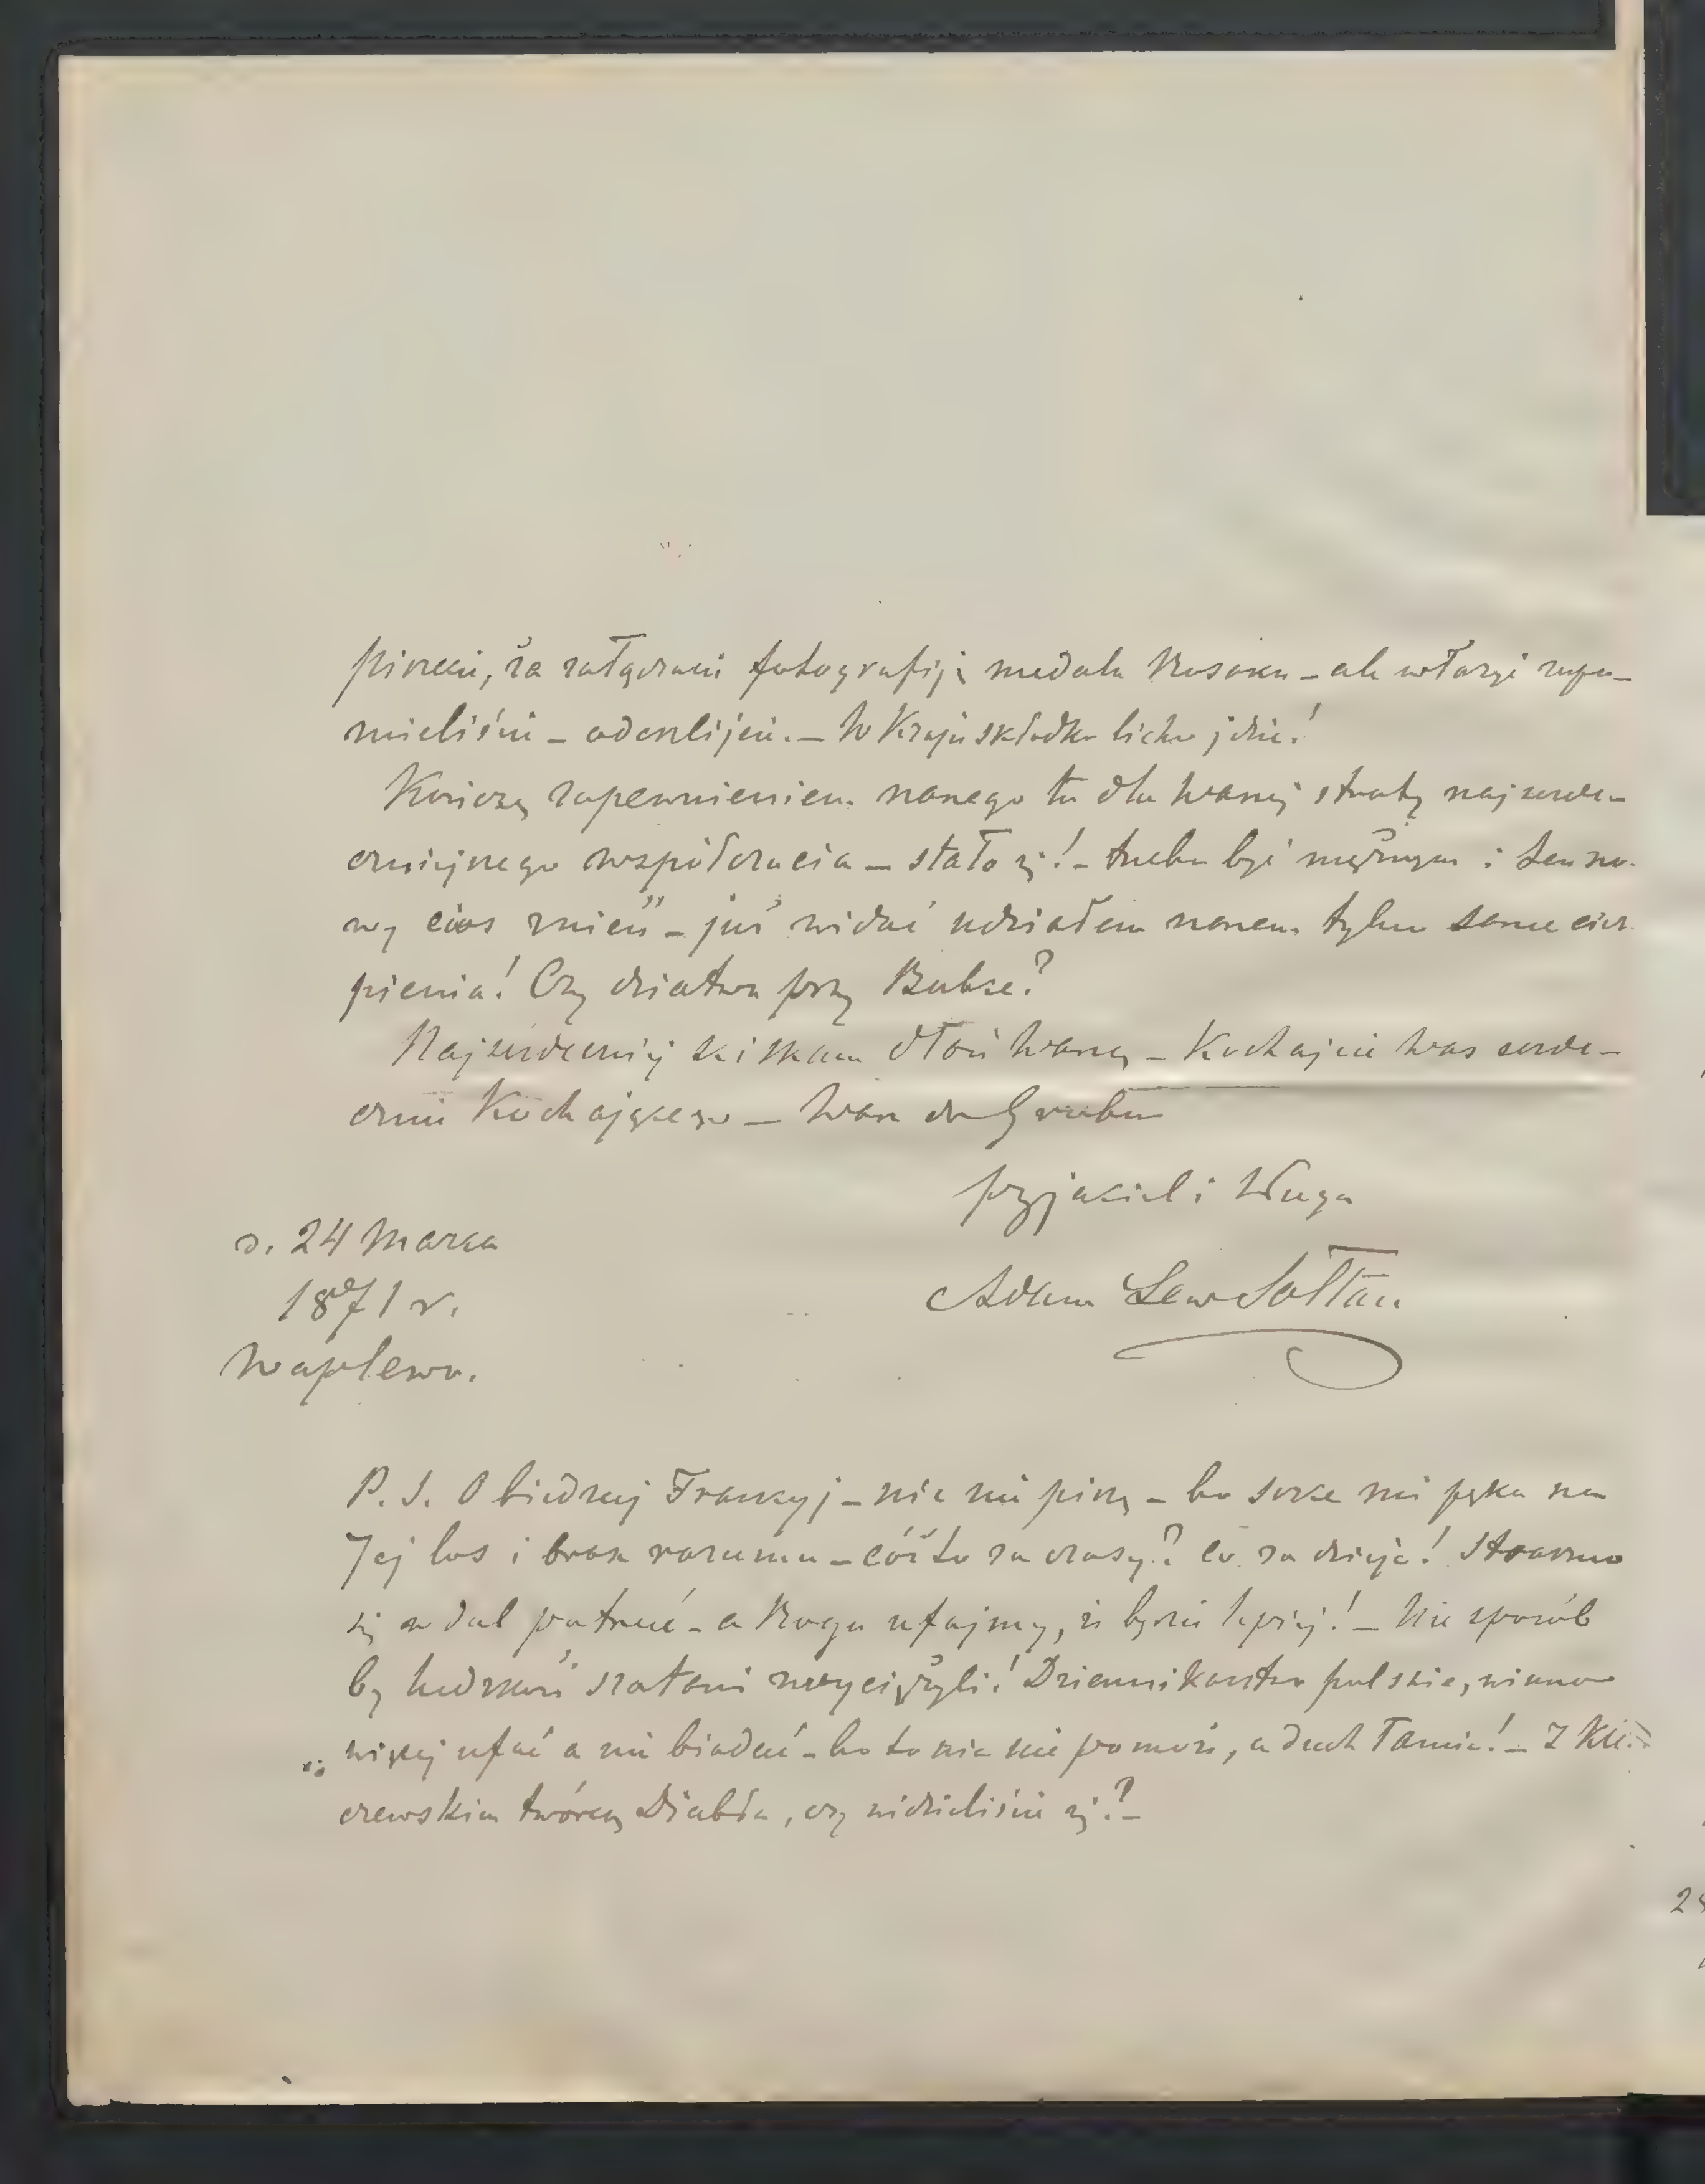 piszecie, że załączacie fotografiję medalu Kossaka – ale włożyć zapo–
mieliście – odeszlijcie. – W Kraju składka licho idzie!
Kończę zapewnieniem naszego tu dla Waszej straty najserde–
czniejszego współczucia – stało się! – trzeba być mężnym i ten no–
wy cios znieść – już widać udziałem naszem tylko same cier–
pienia! Czy dziatwa przy Babce?
Najserdeczniej ściskam dłoń Waszą – Kochajcie Was serde–
cznie Kochającego – Wasz do Grobu
przyjaciel i Sługa
Adam Lew Sołtan
d. 24 Marca
1871 r.
Waplewo.
P. S. O biednej Francyj – nic nie piszę – bo serce mi pęka na
Jej los i brak rozumu – cóż to za czasy? co za dzieje! Straszno
się w dal patrzeć – a Bogu ufajmy, iż będzie lepiej! – Nie sposób
by ludzkość szatani zwyciężyli! Dziennikarstwo polskie, winno
więcej ufać a nie biadać – bo to nic nie pomoże, a duch łamie! – Z
czewskim twórcą Djabła, czy widzieliście się? –